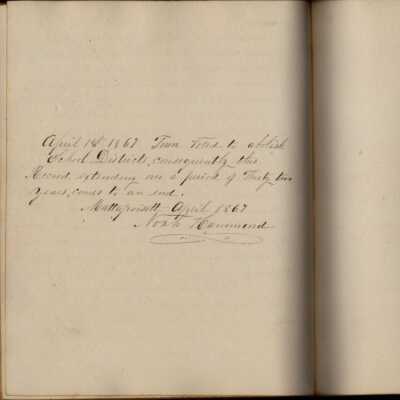 April 1st 1867 Town voted to abolish
School Districts, consequently this
Record extending over a period of Thirty two
years, comes to an end.
Mattapoisett April 1867
Noah Hammond